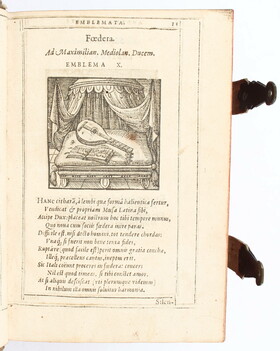 EMBLEMATA. 51
Fœdera.
Ad Maximilian. Mediolan. Ducem.
EMBLEMA X.
HANC citharã, à lembi quæ forma halieutica fertur,
Vendicat & propriam Musa Latina sibi,
Accipe Dux: placeat nostrum hoc tibi tempore munus,
Quo noua cum sociis fœdera inire paras.
Difficile est, nisi docto homini, tot tendere chordas:
Vnaq́, si fuerit non bene tenta fides,
Ruptáve (quod facile est) perit omnis gratia conchæ,
Illeq́, præcellens cantus, ineptus erit.
Sic Itali coëunt proceres in fœdera: concors
Nil est quod timeas, si tibi constet amor.
At si aliquis desciscat (vti plerunque videmus)
In nihilum illa omnis soluitur harmonia.
Silen-